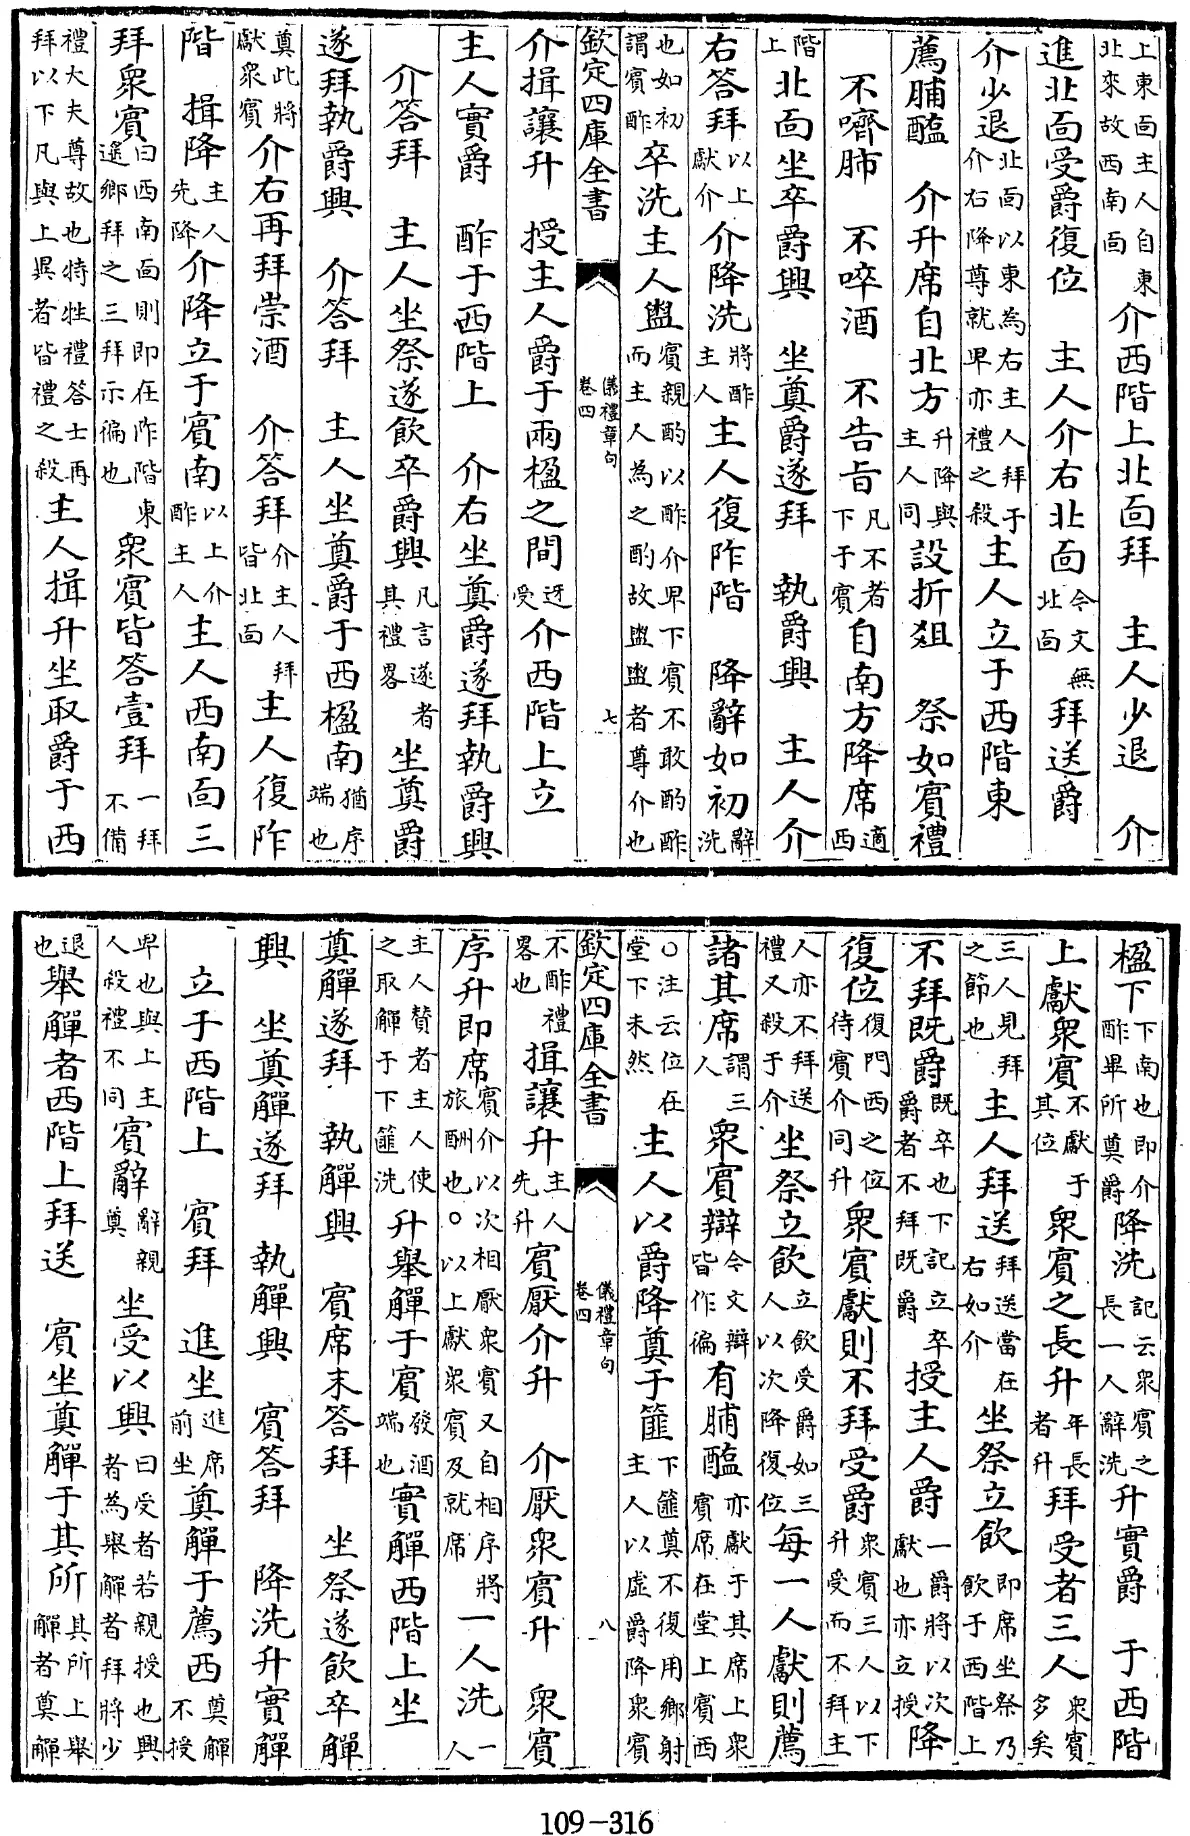 上東面主人自東北來故西南面介西階上北面拜　主人少退　介
進北面受爵復位　主人介右北面今文無北面拜送爵
介少退北面以東為右主人拜于介右降尊就卑亦禮之殺主人立于西階東
薦脯醢　介升席自北方升降與主人同設折俎　祭如賓禮
不嚌肺　不啐酒　不告旨凡不者下于賓自南方降席適西
階上北面坐卒爵興　坐奠爵遂拜　執爵興　主人介
右答拜以上獻介介降洗將酢主人主人復阼階　降辭如初辭洗
也如初謂賓酢卒洗主人盥賓親酌以酢介卑下賓不敢酌酢而主人為之酌故盥盥者尊介也
欽定四庫全書　儀禮章句卷四　七
介揖讓升　授主人爵于兩楹之間迓受介西階上立
主人實爵　酢于西階上　介右坐奠爵遂拜執爵興
介答拜　主人坐祭遂飲卒爵興凡言遂者其禮畧坐奠爵
遂拜執爵興　介答拜　主人坐奠爵于西楹南猶序端也
奠此將獻衆賓介右再拜崇酒　介答拜介主人拜皆北面主人復阼
階　揖降主人先降介降立于賓南以上介酢主人主人西南面三
拜衆賓曰西南面則即在阼階東遙鄉拜之三拜示徧也衆賓皆答壹拜一拜不備
禮大夫尊故也特牲禮答士再拜以下凡與上異者皆禮之殺主人揖升坐取爵于西
楹下下南也即介酢畢所奠爵降洗記云衆賓之長一人辭洗升實爵　于西階
上獻衆賓不獻于其位衆賓之長升年長者升拜受者三人衆賓多矣
三人見拜之節也主人拜送拜送當在右如介坐祭立飲即席坐祭乃飲于西階上
不拜既爵既卒也下記立卒爵者不拜既爵授主人爵一爵將以次獻也亦立授降
復位復門西之位待賓介同升衆賓獻則不拜受爵衆賓三人以下升受而不拜主
人亦不拜送禮又殺于介坐祭立飲立飲受爵如三人以次降復位每一人獻則薦
諸其席謂三人衆賓辯今文辯皆作徧有脯醢亦獻于其席上衆賓席在堂上賓西
○注云位在堂下未然主人以爵降奠于篚下篚奠不復用鄉射主人以虛爵降衆賓
欽定四庫全書　儀禮章句卷四　八
不酢禮畧也揖讓升主人先升賓厭介升　介厭衆賓升　衆賓
序升即席賓介以次相厭衆賓又自相序將旅酬也○以上獻衆賓及就席一人洗一人
主人贊者主人使之取觶于下篚洗升舉觶于賓發酒端也實觶西階上坐
奠觶遂拜　執觶興　賓席末答拜　坐祭遂飲卒觶
興　坐奠觶遂拜　執觶興　賓答拜　降洗升實觶
立于西階上　賓拜　進坐進席前坐奠觶于薦西奠觶不授
卑也與上主人殺禮不同賓辭辭親奠坐受以興曰受者若親授也興者為舉觶者拜將少
退也舉觶者西階上拜送　賓坐奠觶于其所其所上舉觶者奠觶
109-316